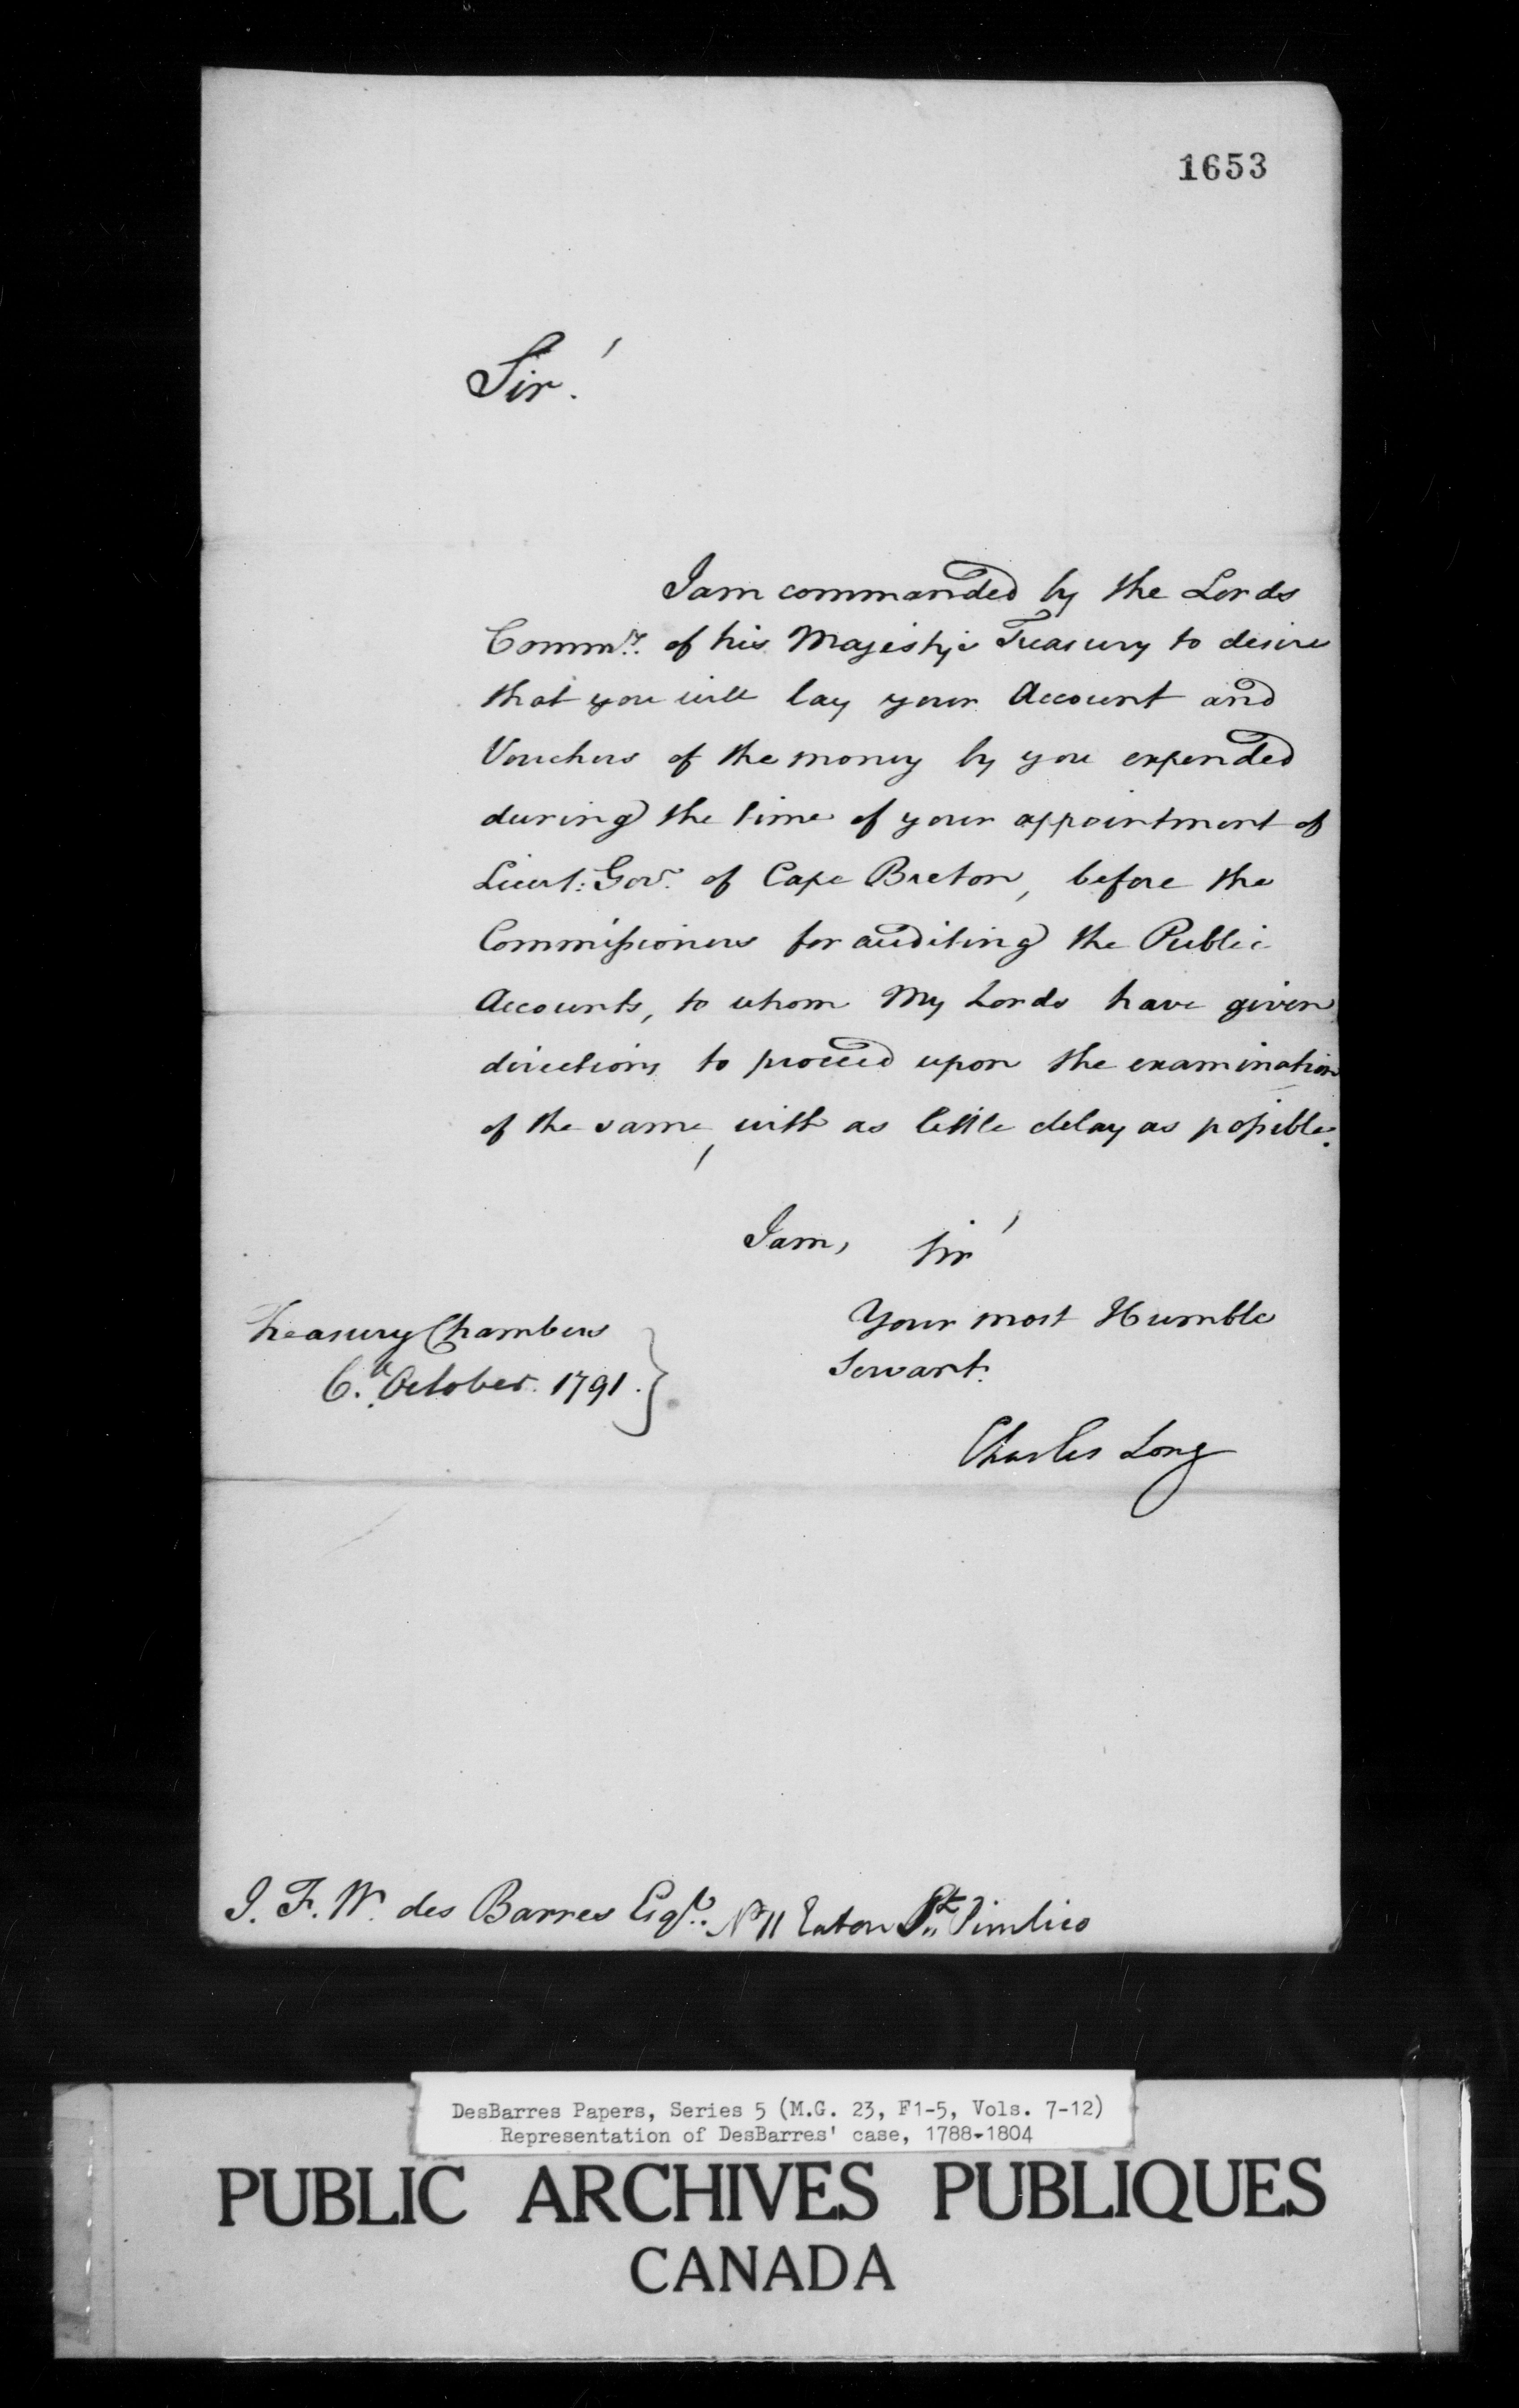 1653
Sir!
I am commanded by the Lords
Commrs. of his Majesty's Treasury to desire
that you will lay your Account and
Vouchers of the money by you expended
during the time of your appointment of
Lieut: Govr. of Cape Breton, before the
Commissioners for auditing the Public
Accounts, to whom My Lords have given
directions to proceed upon the examination
of the same, with as little delay as possible.
I am, Sir!
Your most Humble
Servant.
Treasury Chambers
6th. October. 1791.
Charles Long
J. F. W. des Barres Esqr. No 11 Eaton St. Pimlico
DesBarres Papers, Series 5 (M.G. 23, F1-5, Vols. 7-12)
Representation of DesBarres' case, 1788-1804
PUBLIC ARCHIVES PUBLIQUES
CANADA